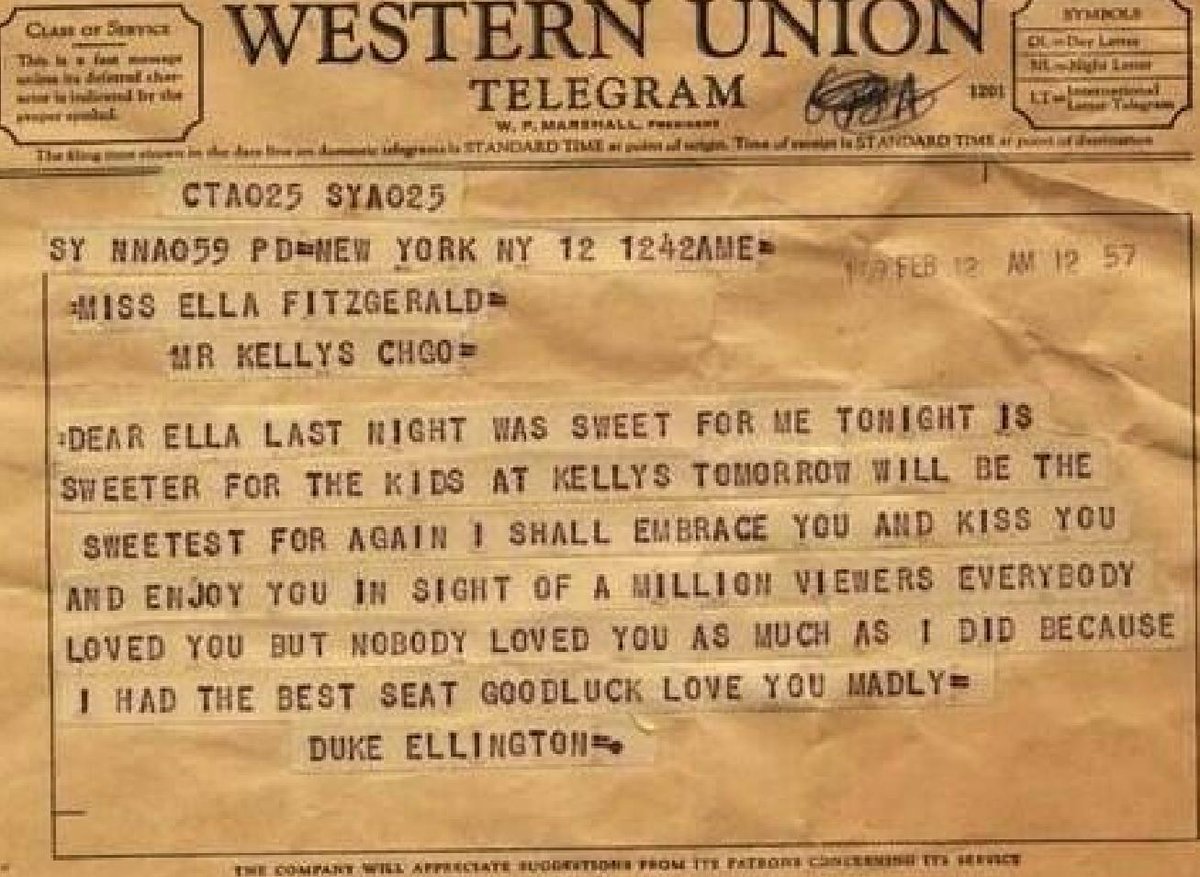 CLASS OF SERVICE
This is a fast message
unless its deferred char-
acter is indicated by the
proper symbol.
WESTERN UNION
TELEGRAM
W. P. MARSHALL, PRESIDENT
1201
SYMBOLS
DL=Day Letter
NL=Night Letter
LT=International
Letter Telegram
The filing time shown in the date line on domestic telegrams is STANDARD TIME at point of origin. Time of receipt is STANDARD TIME at point of destination
CTA025 SYA025
SY NNA059 PD=NEW YORK NY 12 1242AME=
FEB 12 AM 12 57
:MISS ELLA FITZGERALD=
MR KELLYS CHGO=
:DEAR ELLA LAST NIGHT WAS SWEET FOR ME TONIGHT IS
SWEETER FOR THE KIDS AT KELLYS TOMORROW WILL BE THE
SWEETEST FOR AGAIN I SHALL EMBRACE YOU AND KISS YOU
AND ENJOY YOU IN SIGHT OF A MILLION VIEWERS EVERYBODY
LOVED YOU BUT NOBODY LOVED YOU AS MUCH AS I DID BECAUSE
I HAD THE BEST SEAT GOODLUCK LOVE YOU MADLY=
DUKE ELLINGTON=.
THE COMPANY WILL APPRECIATE SUGGESTIONS FROM ITS PATRONS CONCERNING ITS SERVICE